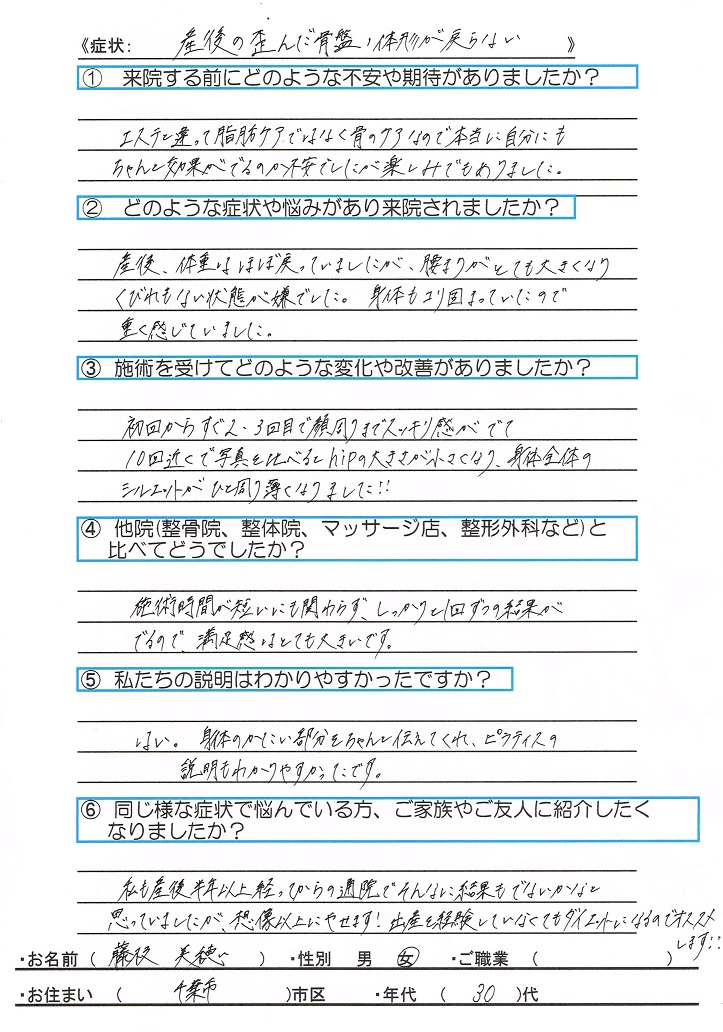 《症状: 産後の歪んだ骨盤、体形が戻らない 》
① 来院する前にどのような不安や期待がありましたか？
エステと違って脂肪ケアではなく骨のケアなので本当に自分にも
ちゃんと効果がでるのか不安でしたが楽しみでもありました。
② どのような症状や悩みがあり来院されましたか？
産後、体重はほぼ戻っていましたが、腰まわりがとても大きくなり
くびれもない状態が嫌でした。身体もコリ固まっていたので
重く感じていました。
③ 施術を受けてどのような変化や改善がありましたか？
初回からすぐ2・3回目で顔周りまでスッキリ感がでて
10回近くで写真を比べるとhipの大きさが小さくなり、身体全体の
シルエットがひと周り薄くなりました!!
④ 他院(整骨院、整体院、マッサージ店、整形外科など)と
比べてどうでしたか？
施術時間が短いにも関わらず、しっかりと1回ずつの結果が
でるので、満足感はとても大きいです。
⑤ 私たちの説明はわかりやすかったですか？
はい。身体のかたい部分をちゃんと伝えてくれ、ピラティスの
説明もわかりやすかったです。
⑥ 同じ様な症状で悩んでいる方、ご家族やご友人に紹介したく
なりましたか？
私も産後半年以上経ってからの通院でそんなに結果もでないかなと
思っていましたが、想像以上にやせます！出産を経験していなくてもダイエットになるのでオススメ
します!!
・お名前（ 藤枝 美穂 ） ・性別 男 女 ・ご職業 （ ）
・お住まい （ 千葉市 ）市区 ・年代 （ 30 ）代